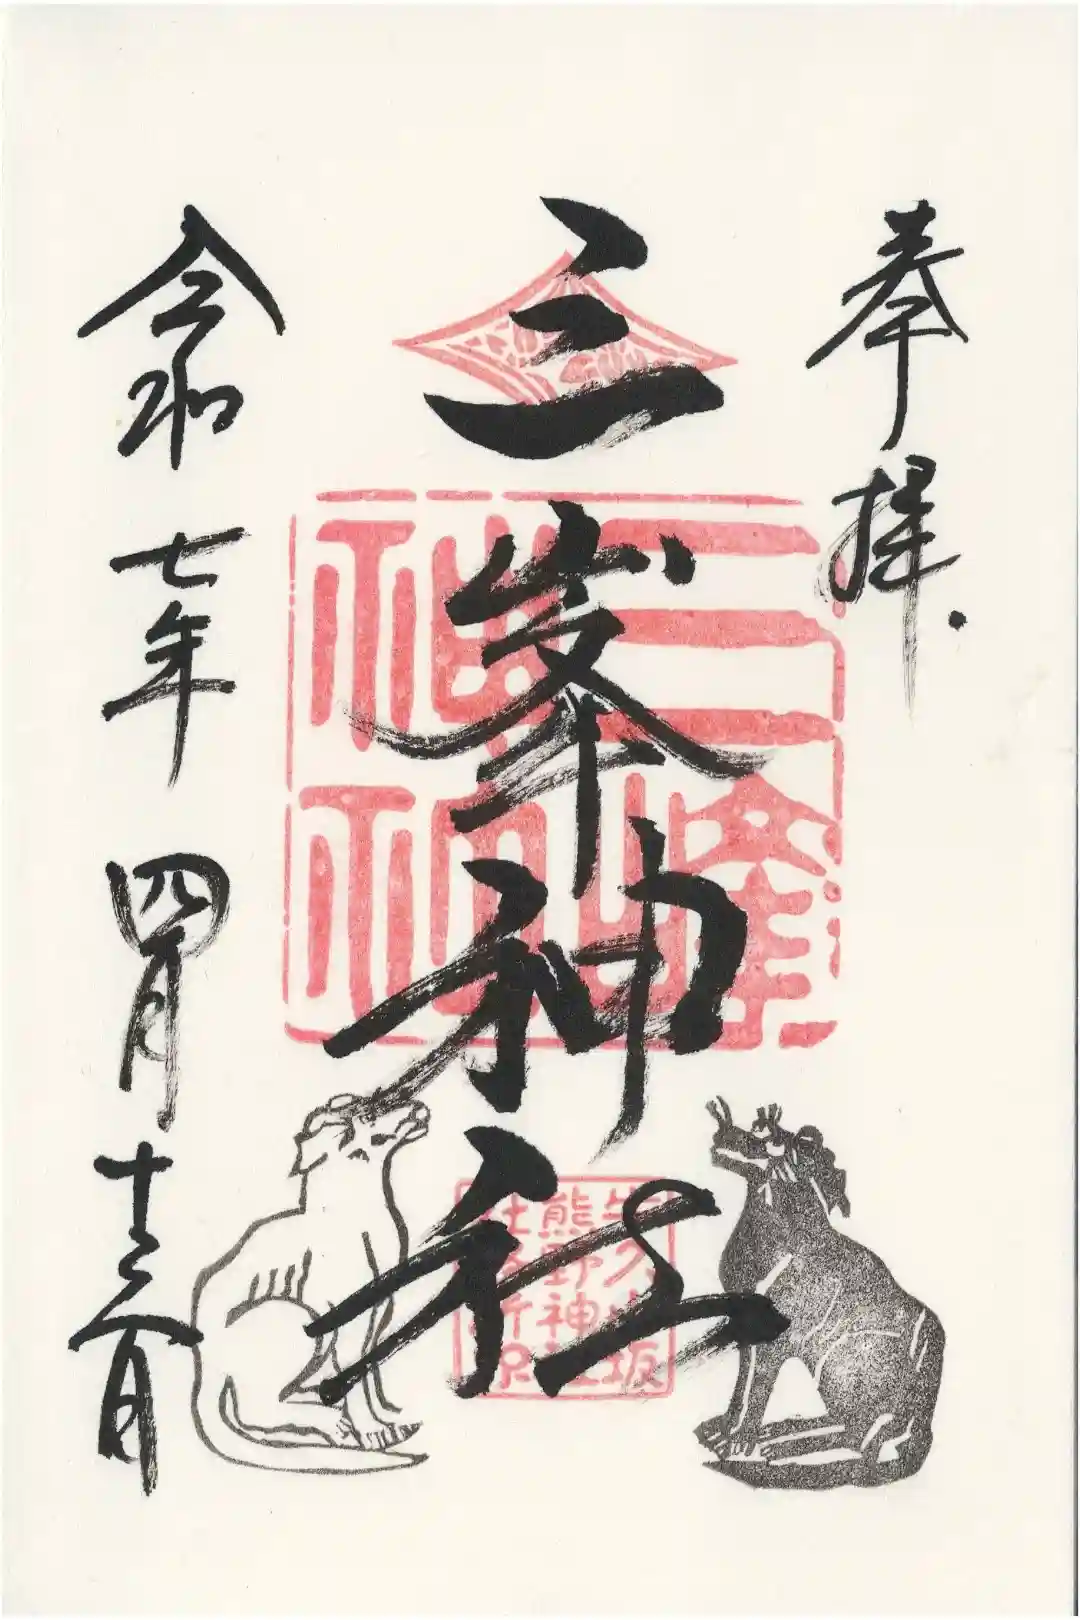 奉拝
三峯神社
三峰
神社
熊野神社
社務所印
令和七年四月十三日